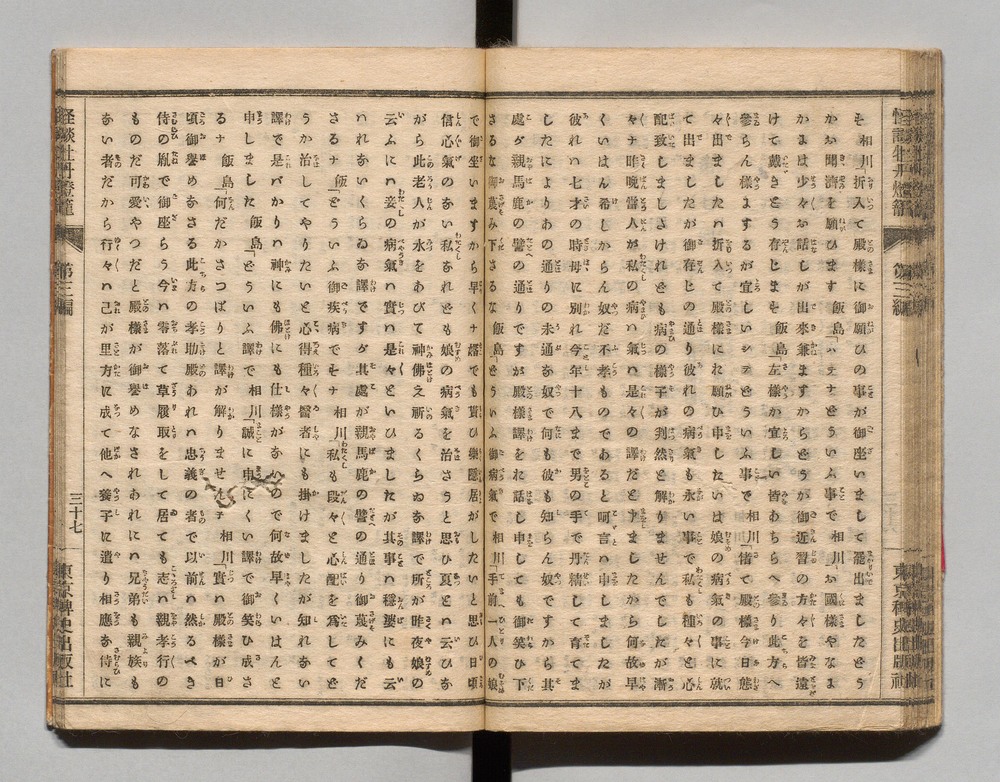 そ 相川「折入つて殿様に御願ひの事が御座いまして罷出ましたどう
かお聞濟を願ひます 飯島「ハテナどういふ事で 相川「お國様やなま
かまは少々お話しが出來兼ますからどうか御近習の方々を皆遠
けて戴きとう存じまを 飯島「左様か宜しい皆あちらへ參り此方へ
參らん様よするが宜しいシテどういふ事で 相川「偖て殿様今日態
々出ましたハ折入て殿様にお願ひ申したいは娘の病氣の事に就
て出ましたが御存じの通り彼れの病氣も永い事で私も種々と心
配致しましさけれども病の様子が判然と解りませんでしたが漸
々ナ昨晩當人が私の病ハ是々の譯だと申ましたから何故早
くいはん希しからん奴だ不孝ものであると呵言ハ申ましたが
彼れハ七才の時母に別れ今年十八まで男の手で丹精して育てま
したによりあの通りの未通な奴で何も彼も知らん奴ですから其
處が親馬鹿の譬の通りですが殿様譯をお話し申しても御笑ひ下
さるな御蔑み下さるな 飯島「どういふ御病氣で 相川「手前一人の娘
で御坐いますから早くナ婿でも貰ひ樂隱居がしたいと思ひ日頃
信心氣のあい私あれども娘の病氣を治さうと思ひ夏とハ云ひあ
がら此老人が水をあびて神佛え祈るくらゐあ譯で所が昨夜娘の
云ふにハ妾の病氣ハ實ハ是々といひましたが其事ハ穩婆にも云
ハれあいくらゐあ譯ですが其處が親馬鹿の譬の通り御蔑みくだ
さるナ 飯「どういふ御疾病でモナ 相川「私も段々と心配を爲してど
うか治してやりたいと心得種々醫者にも掛けましたが知れあい
譯で是ばかりハ神にも佛にも仕様があいので何故早くいはんと
申しました 飯島「どういふ譯で 相川「誠に申にくい譯で御笑ひ成さ
るナ 飯島「何だかさつぱりと譯が解りませんナ 相川「實ハ殿様が日
頃御譽めあさる此方の孝助殿あれハ忠義の者で以前ハ然るべき
侍の胤で御座らう今ハ零落て草履取をして居ても志ハ親孝行の
ものだ可愛やつだと殿様が御譽めなされあれにハ兄弟も親族も
あい者だから行々ハ己が里方に成て他へ養子に遣り相應あ侍に
怪談牡丹燈籠
第三編
三十七
東京稗史出版社
怪談牡丹燈籠
第三編
東京稗史出版社